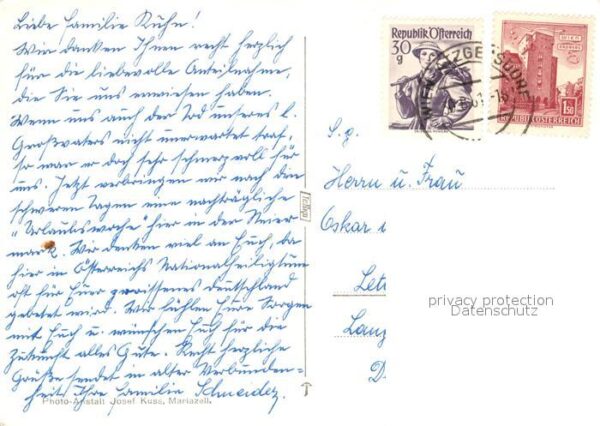 Liebe Familie Kühn!
Wir danken Ihnen recht herzlich
für die liebevolle Anteilnahme,
die Sie uns erwiesen haben.
Wenn uns auch der Tod unseres l.
Großvaters nicht unerwartet traf,
so war er doch sehr schmerzvoll für
uns. Jetzt verbringen wir nach den
schweren Tagen eine nachträgliche
"Urlaubswoche" hier in der Steier
mark. Wir denken viel an Euch, da
hier in Österreichs Nationalheiligtum
oft für Euer zerrissenes Deutschland
gebetet wird. Wir fühlen Eure Sorgen
mit Euch u. wünschen Euch für die
Zukunft alles Gute. Recht herzliche
Grüße sendet in alter Verbunden-
heit Ihre Familie Schneider.
Photo-Anstalt Josef Kuss, Mariazell.
Republik Österreich
30
g
WIEN
1.50
REPUBLIK ÖSTERREICH
S. g.
Herrn u. Frau
Oskar
privacy protection
Datenschutz